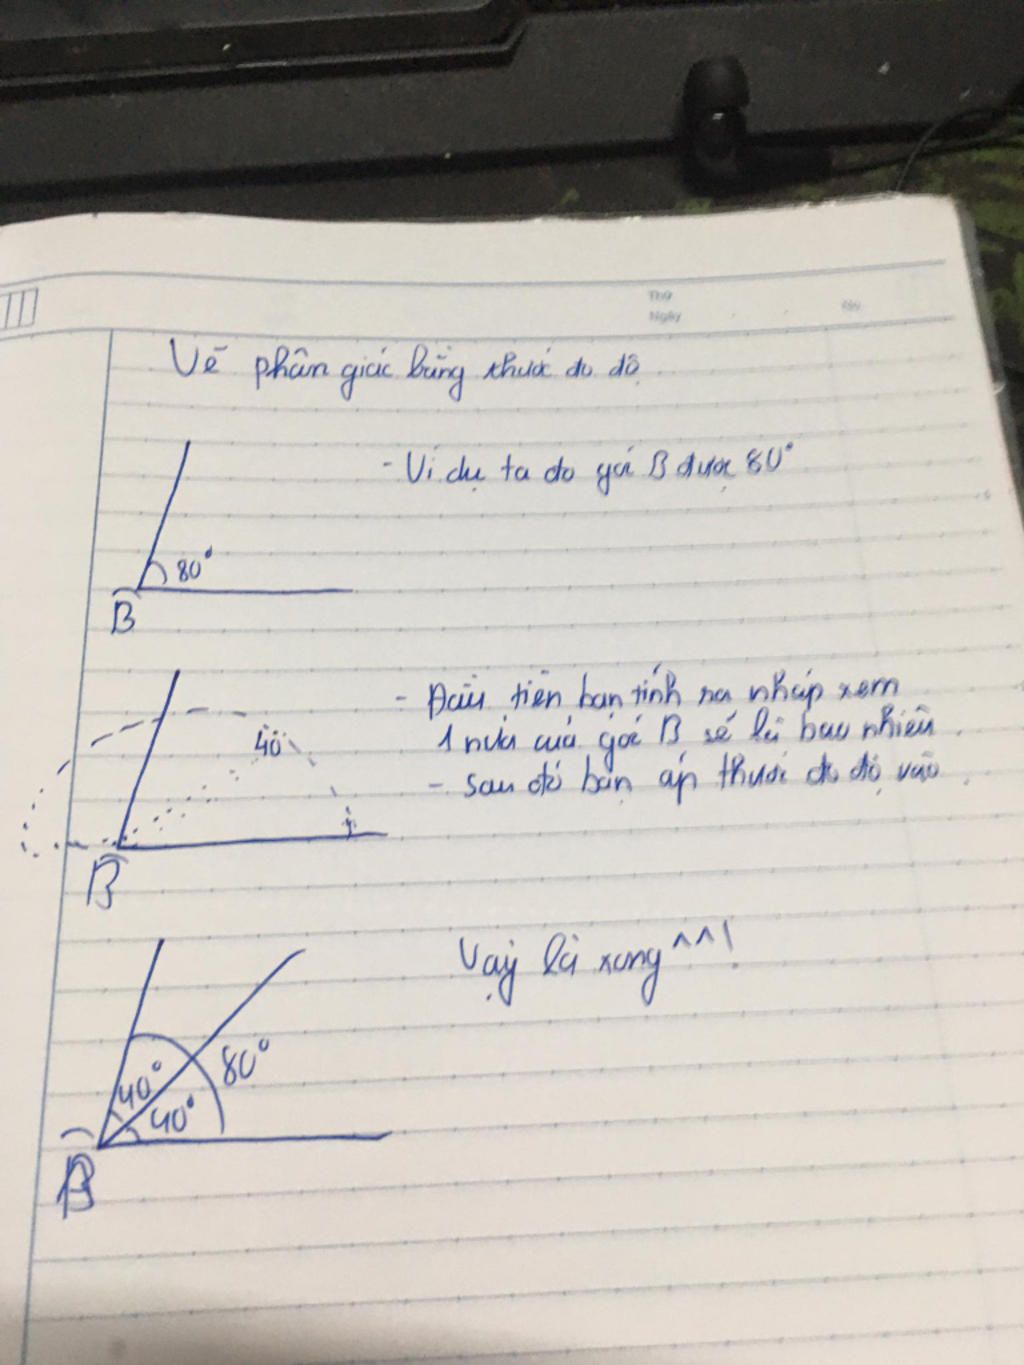 Thứ
Ngày
No
Vẽ phân giác bằng thước đo độ
- Ví dụ ta đo góc B được 80°
80°
B
- Đầu tiên bạn tính ra nháp xem
1 nửa của góc B sẽ là bao nhiêu
40°
- sau đó bạn áp thước đo độ vào
B
Vậy là xong ^^!
80°
40°
40°
B